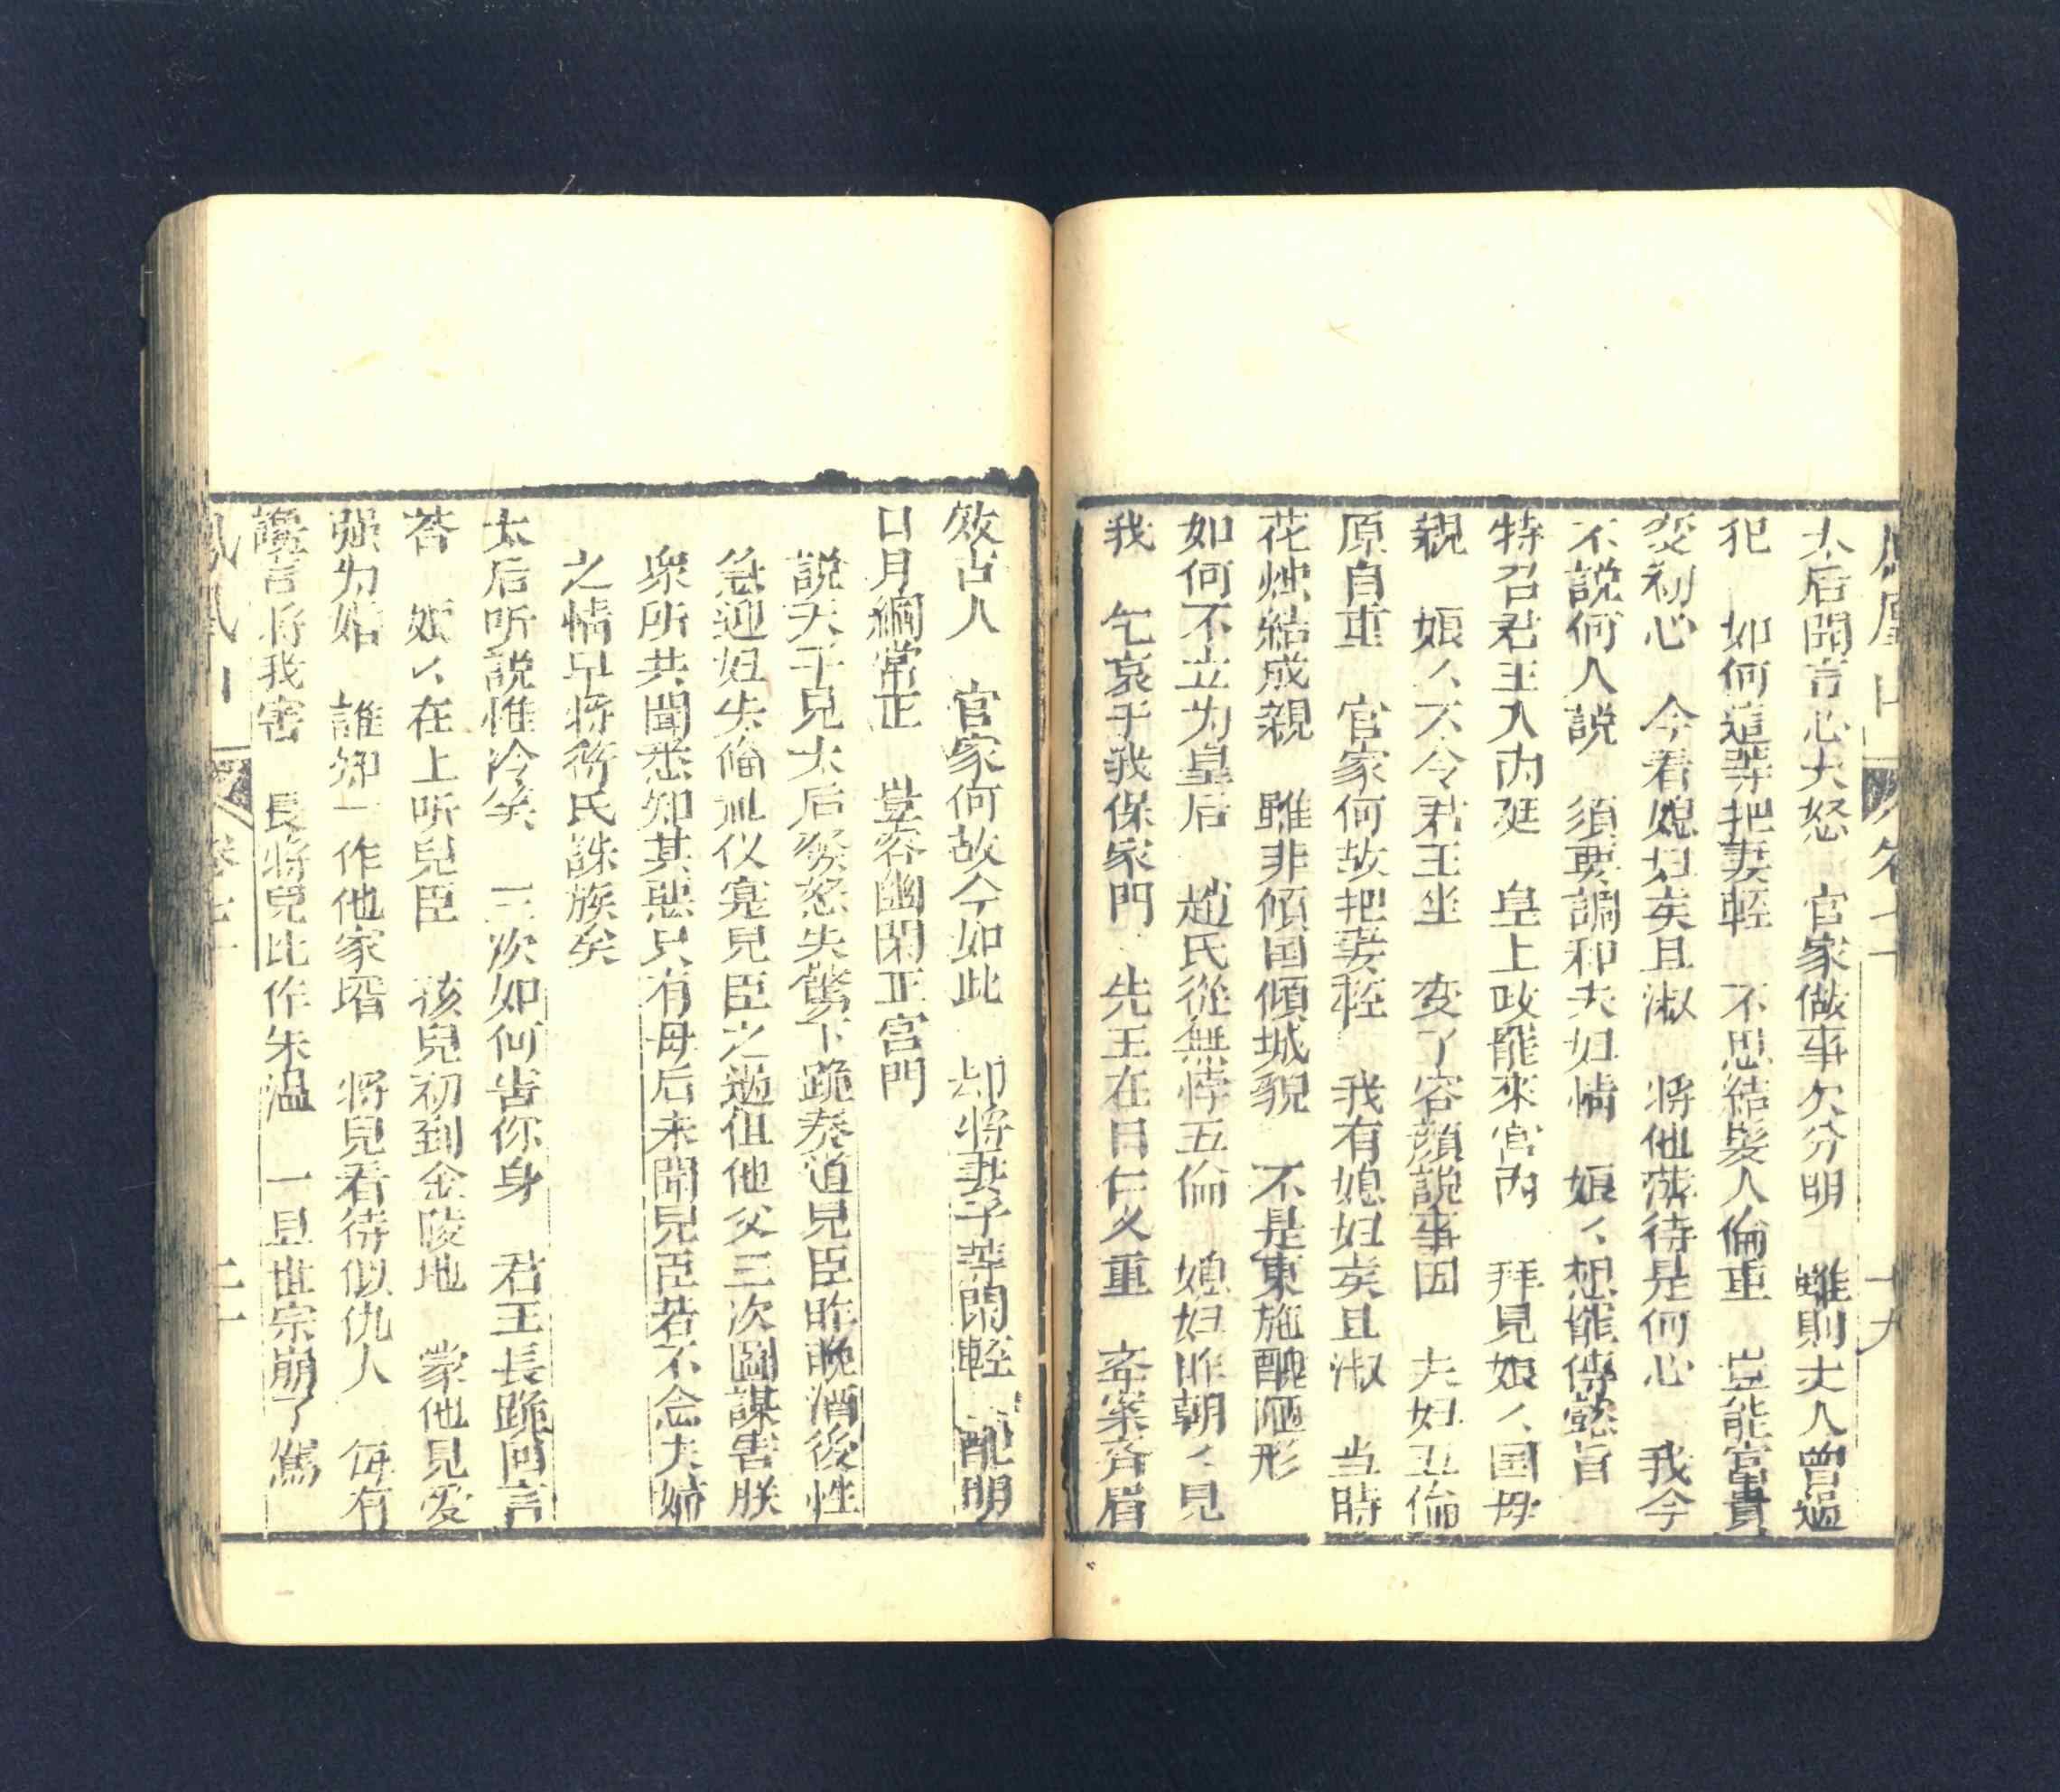 太后開言心大怒　官家做事欠分明　雖則丈人曾過
犯　如何這等把妻輕　不思結髮人倫重　豈能富貴
変初心　今看媳妇矣且淑　將他薄待是何心　我今
不説何人説　須要調和夫妇情　娘〻想罷傳懿旨
特召君王入内廷　皇上政罷來宮内　拜見娘〻国母
親　娘〻不令君王坐　変了容顔説事因　夫妇五倫
原自重　官家何故把妻輕　我有媳妇矣且淑　当時
花烛結成親　雖非傾国傾城貌　不是東施醜陋形
如何不立为皇后　趙氏從無悖五倫　媳妇昨朝〻見
我　乞哀乎我保家門　先王在日仁义重　举案齐眉
效古人　官家何故今如此　却將妻子等閑輕　配明
日月綱常正　豈容幽閑正宮門
説天子見太后發怒失驚下跪奏道兒臣昨晚酒後性
急迎妇失倫乱仪寔兒臣之過但他父三次圖謀害朕
衆所共聞悉知其惡只有母后未聞兒臣若不念夫婦
之情早將衛氏誅族矣
太后听説惟冷笑　三次如何害你身　君王長跪回言
荅　娘〻在上听兒臣　孩兒初到金陵地　蒙他見爱
强为婚　誰知一作他家壻　將兒看待似仇人　每有
讒言將我害　長將兒比作朱温　一旦世宗崩了駕
鳳凰山　卷七十